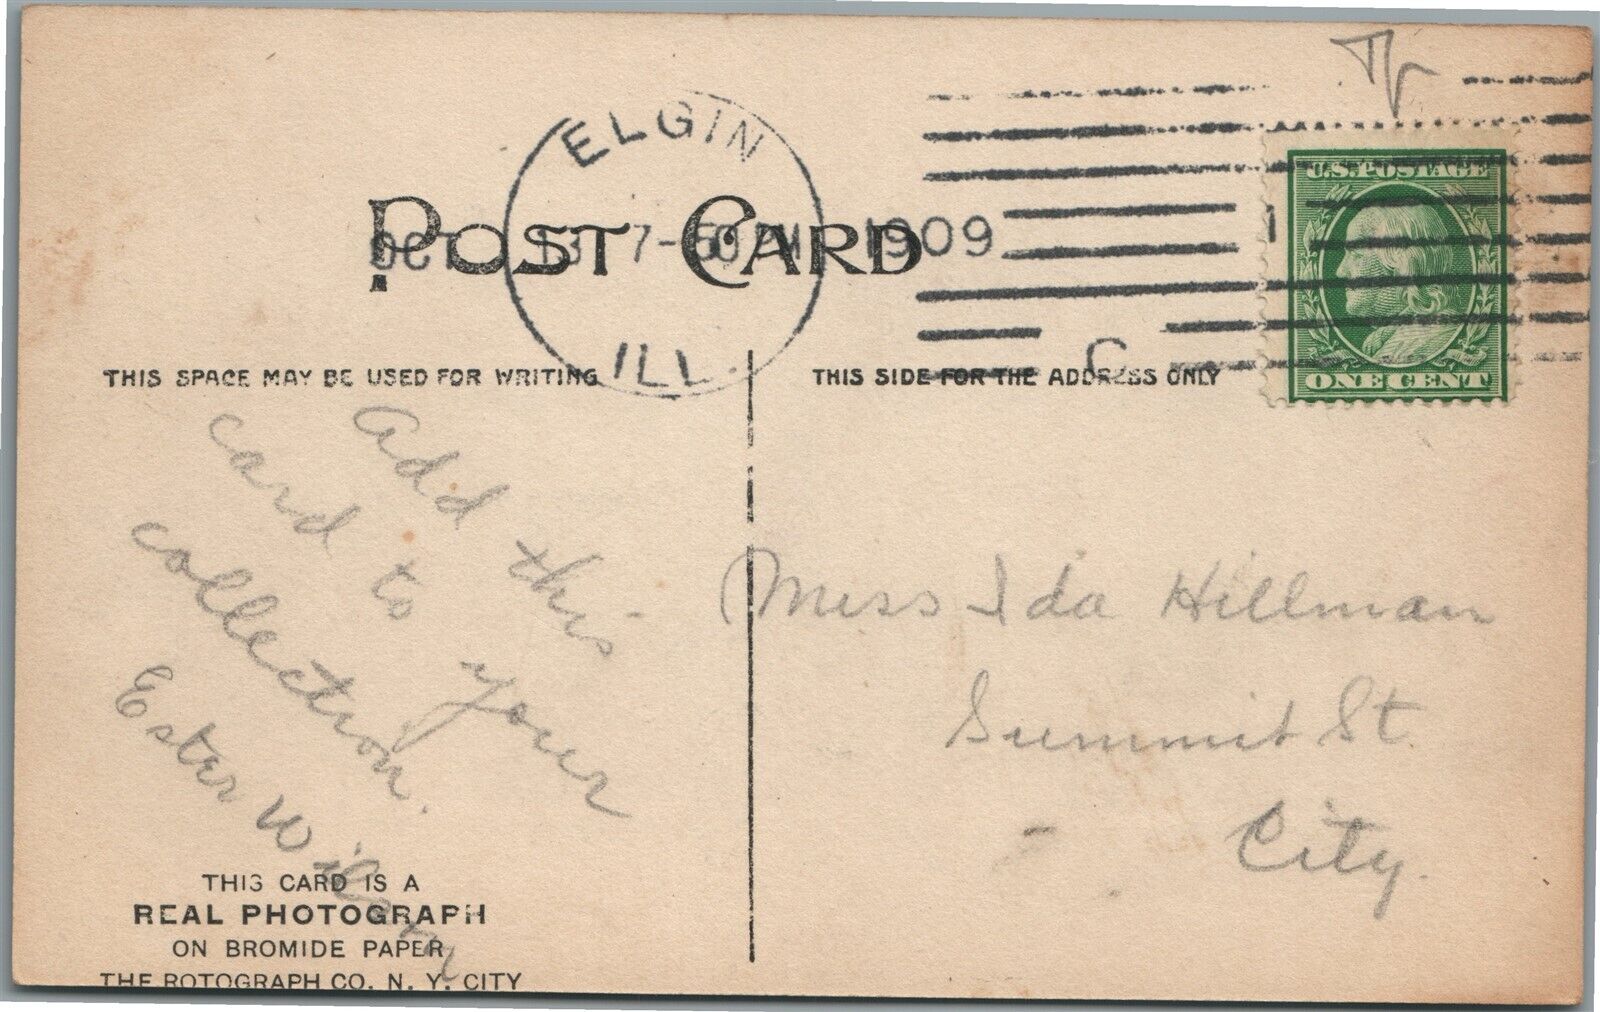 ELGIN
OCT 13 7-50 PM 1909
ILL.
U.S. POSTAGE
ONE CENT
POST CARD
THIS SPACE MAY BE USED FOR WRITING
THIS SIDE FOR THE ADDRESS ONLY
Add this
card to your
collection.
Ester Wilson
Miss Ida Hillman
Summit St
City.
THIS CARD IS A
REAL PHOTOGRAPH
ON BROMIDE PAPER
THE ROTOGRAPH CO. N. Y. CITY